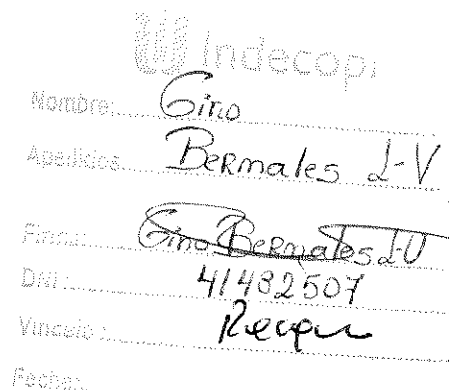 Indecopi
Nombre: Gino
Apellidos: Bermales L-V
Firma: Gino Bermales L-V
DNI: 41482507
Vinculo:
Fecha: